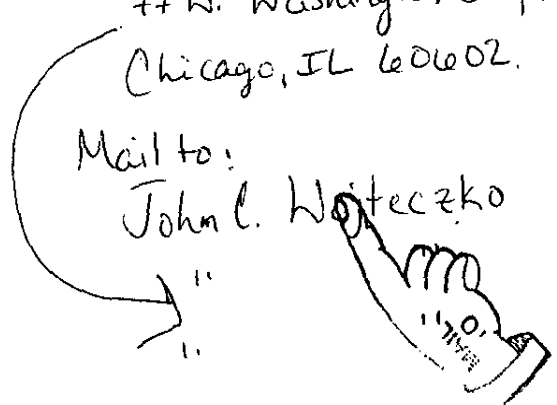 W. Washington
Chicago, IL 60602.
Mail to:
John C. Wojteczko
"
"
MAIL